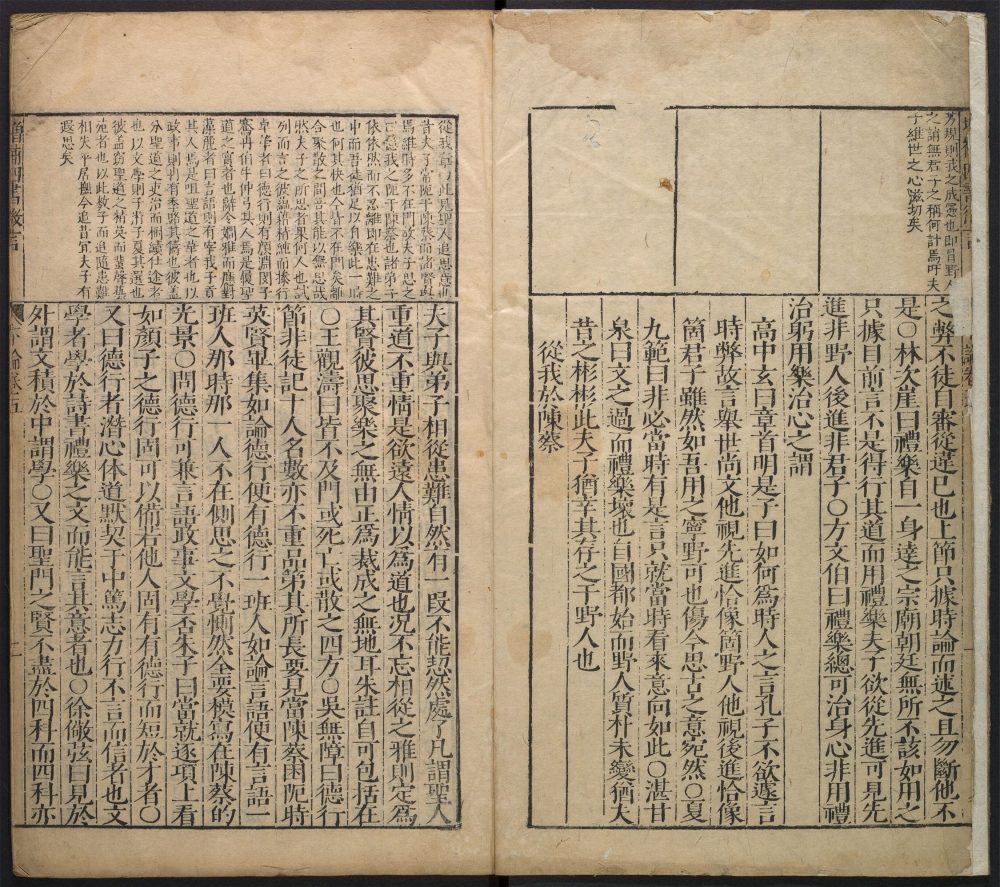 方規則我之成憲也即冒野人
之誚無君子之稱何計焉吁夫
子維世之心滋切矣
之弊不徒自審從違已也上節只據時論而述之且勿斷他不
是○林次崖曰禮樂自一身達之宗廟朝廷無所不該如用之
只據目前言不是得行其道而用禮樂夫子欲從先進可見先
進非野人後進非君子○方文伯曰禮樂總可治身心非用禮
治躬用樂治心之謂
高中玄曰章首明是子曰如何為時人之言孔子不欲遽言
時弊故言舉世尚文他視先進恰像箇野人他視後進恰像
箇君子雖然如吾用之寧野可也傷今思古之意宛然○夏
九範曰非必當時有是言只就當時看來意向如此○湛甘
泉曰文之過而禮樂壞也自國都始而野人質朴未變猶夫
昔之彬彬此夫子猶幸其存之于野人也
從我於陳蔡
從我章 此是聖人追思意也
昔夫子常阨于陳蔡而諸賢與
焉維時多不在門故夫子思之
曰憶我之阨于陳蔡也諸弟子
依依然而不忍離即在患難之
中而吾徒猶足以自樂此一時
也何其快也今皆不在門矣離
合聚散之間吾其能以無思哉
然夫子之所思者果何人也試
列而言之彼蘊藉精純而操行
卓犖者曰德行則有顏淵閔子
騫冉伯牛仲弓其人焉是履聖
道之實者也辭令嫺雅而應對
者曰言語則有宰我子貢
其人焉是咀聖道之華者也以
政事則有冉有季路其儔也彼蓋
分聖道之吏治而樹績仕途者
也以文學則子游子夏其選也
彼蓋窈聖道之精英而蜚聲藝
苑者也以此數子而追隨患難
相失平居撫今追昔宜夫子有
遐思矣
夫子與弟子相從患難自然有一段不能恝然處了凡謂聖人
重道不重情是欲遠人情以為道也况不忘相從之雅則定為
其賢彼思聚樂之無由正為裁成之無地耳朱註自可包括在
○王觀濤曰皆不及門或死亡或散之四方○吳無障曰德行
節非徒記十人名數亦不重品第其所長要見當陳蔡困阨時
英賢畢集如論德行便有德行一班人如論言語便有言語一
班人那時那一人不在側思之不覺惻然全要模寫在陳蔡的
光景○問德行可兼言語政事文學否朱子曰當就逐項上看
如顏子之德行固可以備若他人固有有德行而短於才者○
又曰德行者潛心体道默契于中篤志力行不言而信者也文
學者學於詩書禮樂之文而能言其意者也○徐儆弦曰見於
外謂文積於中謂學○又曰聖門之賢不盡於四科而四科亦